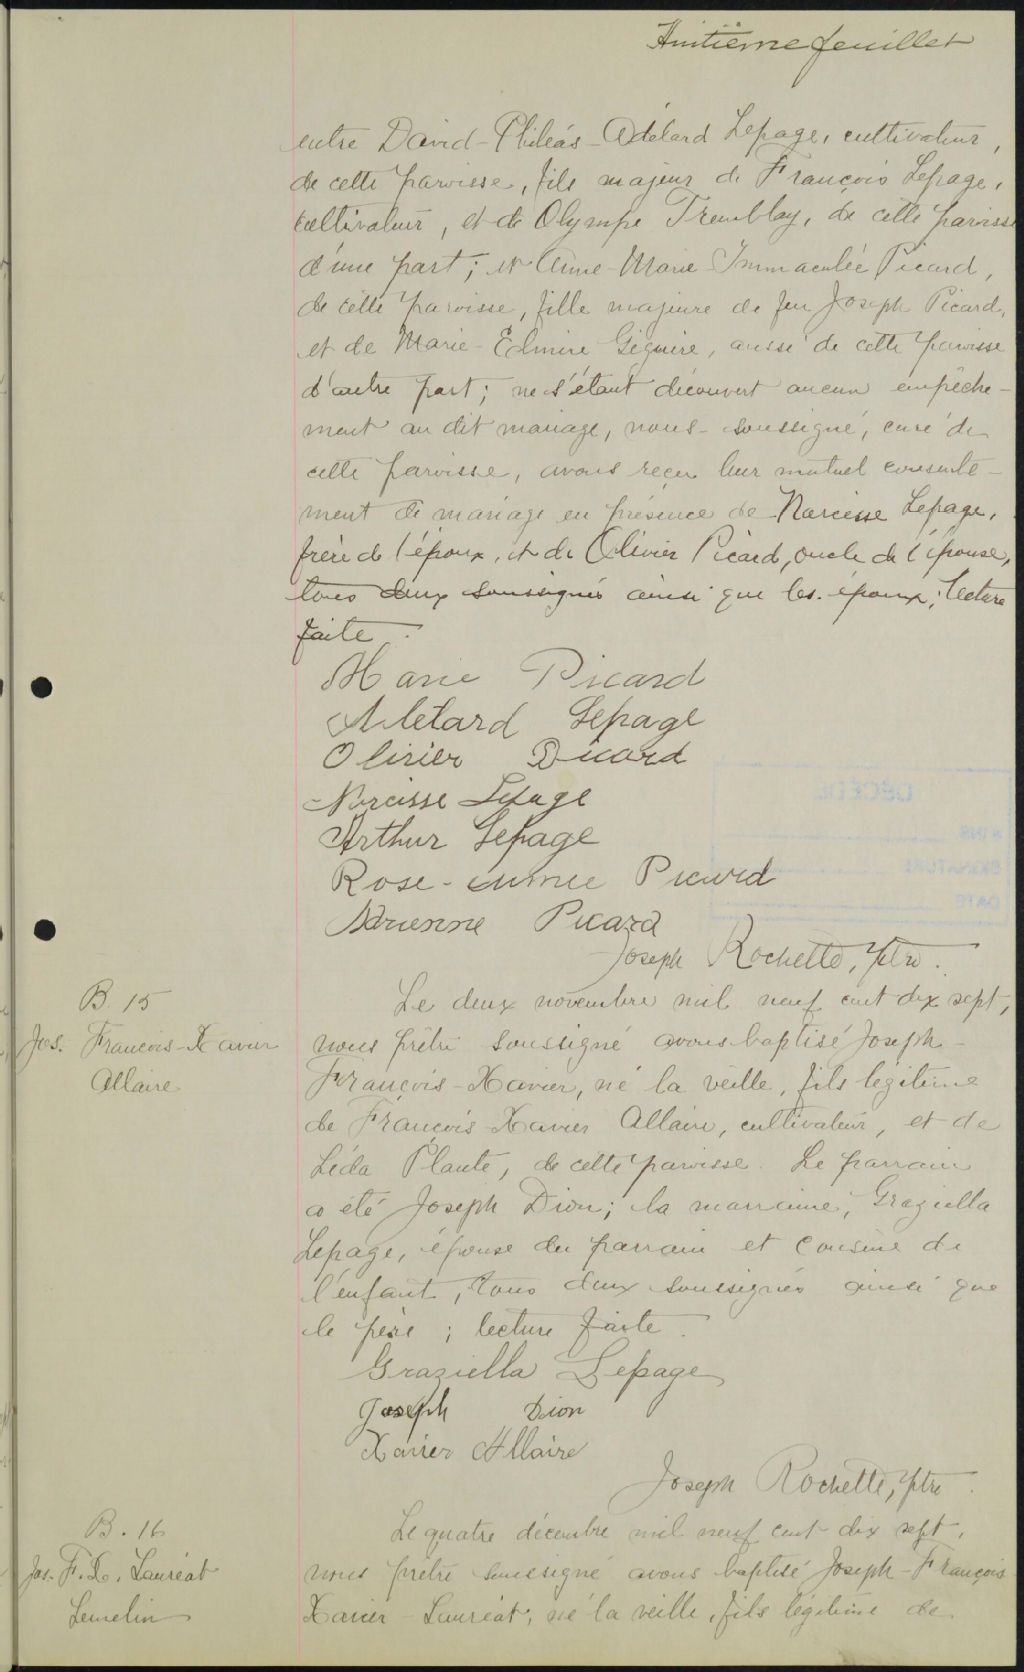 Huitième feuillet
entre David-Philéas-Adélard Lepage, cultivateur,
de cette paroisse, fils majeur de François Lepage,
cultivateur, et de Olympe Tremblay, de cette paroisse
d'une part; et Anne-Marie-Immaculée Picard,
de cette paroisse, fille majeure de feu Joseph Picard,
et de Marie-Elmire Giguère, aussi de cette paroisse
d'autre part; ne s'étant découvert aucun empêche-
ment au dit mariage, nous-soussigné, curé de
cette paroisse, avons reçu leur mutuel consente-
ment de mariage en présence de Narcisse Lepage,
frère de l'époux, et de Olivier Picard, oncle de l'épouse,
tous deux soussignés ainsi que les époux; lecture
faite.
Marie Picard
Adélard Lepage
Olivier Picard
Narcisse Lepage
Arthur Lepage
Rose-Aimée Picard
Adrienne Picard
Joseph Rochette, ptre.
DÉCÉDÉ
SIGNATURE
DATE
B. 15
Jos. François-Xavier
Allaire
Le deux novembre mil neuf cent dix sept,
nous prêtre soussigné avons baptisé Joseph-
François-Xavier, né la veille, fils légitime
de François-Xavier Allaire, cultivateur, et de
Léda Plante, de cette paroisse. Le parrain
a été Joseph Dion; la marraine, Graziella
Lepage, épouse du parrain et cousine de
l'enfant, tous deux soussignés ainsi que
le père; lecture faite.
Graziella Lepage
Joseph Dion
Xavier Allaire
Joseph Rochette, ptre.
B. 16
Jos. F. X. Lauréat
Lemelin
Le quatre décembre mil neuf cent dix sept,
nous prêtre soussigné avons baptisé Joseph-François
Xavier-Lauréat, né la veille, fils légitime de